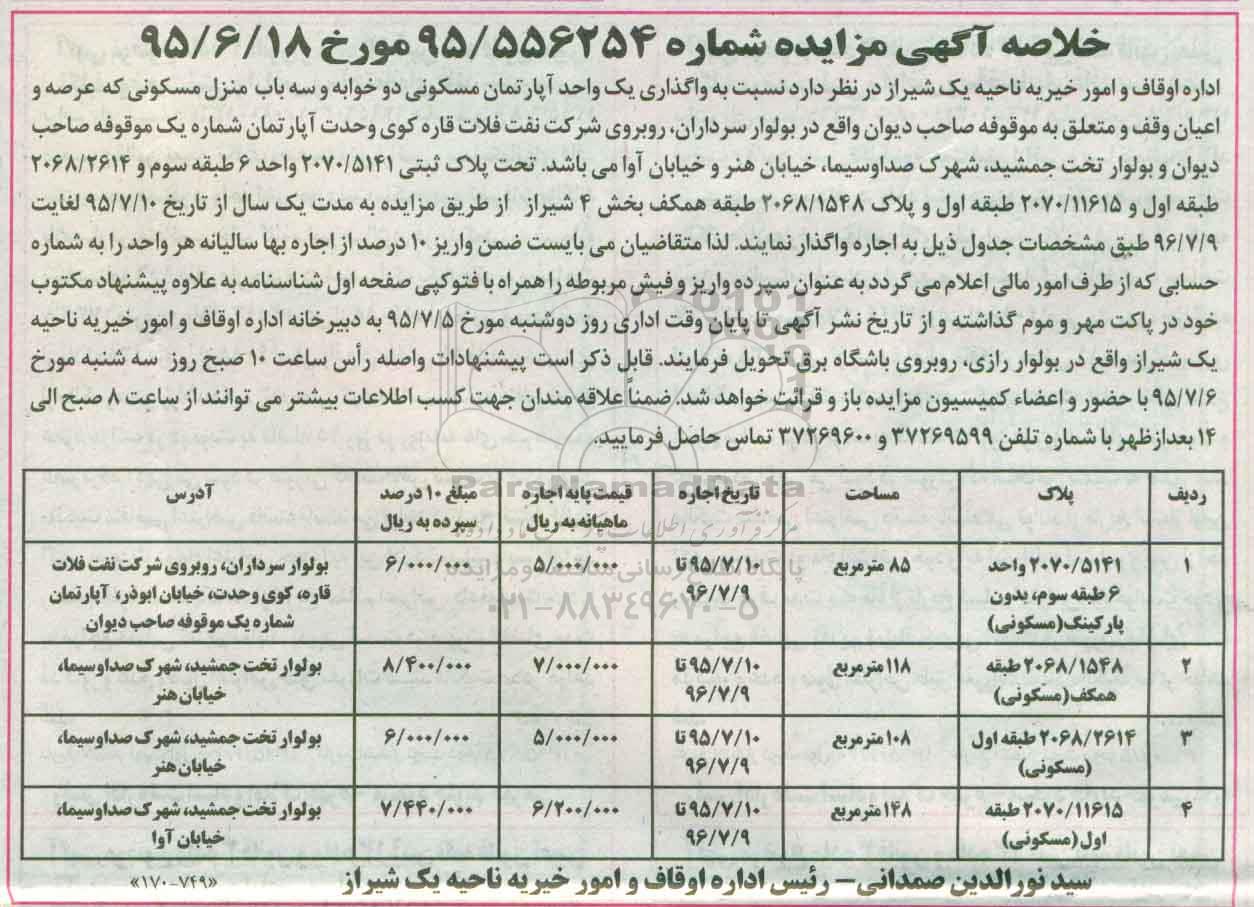 خلاصه آگهی مزایده شماره ۹۵/۵۵۶۲۵۴ مورخ ۹۵/۶/۱۸
اداره اوقاف و امور خیریه ناحیه یک شیراز در نظر دارد نسبت به واگذاری یک واحد آپارتمان مسکونی دو خوابه و سه باب منزل مسکونی که عرصه و
اعیان وقف و متعلق به موقوفه صاحب دیوان واقع در بولوار سرداران، روبروی شرکت نفت فلات قاره کوی وحدت آپارتمان شماره یک موقوفه صاحب
دیوان و بولوار تخت جمشید، شهرک صداوسیما، خیابان هنر و خیابان آوا می باشد. تحت پلاک ثبتی ۲۰۷۰/۵۱۴۱ واحد ۶ طبقه سوم و ۲۰۶۸/۲۶۱۴
طبقه اول و ۲۰۷۰/۱۱۶۱۵ طبقه اول و پلاک ۲۰۶۸/۱۵۴۸ طبقه همکف بخش ۴ شیراز از طریق مزایده به مدت یک سال از تاریخ ۹۵/۷/۱۰ لغایت
۹۶/۷/۹ طبق مشخصات جدول ذیل به اجاره واگذار نمایند. لذا متقاضیان می بایست ضمن واریز ۱۰ درصد از اجاره بها سالیانه هر واحد را به شماره
حسابی که از طرف امور مالی اعلام می گردد به عنوان سپرده واریز و فیش مربوطه را همراه با فتوکپی صفحه اول شناسنامه به علاوه پیشنهاد مکتوب
خود در پاکت مهر و موم گذاشته و از تاریخ نشر آگهی تا پایان وقت اداری روز دوشنبه مورخ ۹۵/۷/۵ به دبیرخانه اداره اوقاف و امور خیریه ناحیه
یک شیراز واقع در بولوار رازی، روبروی باشگاه برق تحویل فرمایند. قابل ذکر است پیشنهادات واصله رأس ساعت ۱۰ صبح روز سه شنبه مورخ
۹۵/۷/۶ با حضور و اعضاء کمیسیون مزایده باز و قرائت خواهد شد. ضمناً علاقه مندان جهت کسب اطلاعات بیشتر می توانند از ساعت ۸ صبح الی
۱۴ بعدازظهر با شماره تلفن ۳۷۲۶۹۵۹۹ و ۳۷۲۶۹۶۰۰ تماس حاصل فرمایید.
ردیف پلاک مساحت تاریخ اجاره قیمت پایه اجاره ماهیانه به ریال مبلغ ۱۰ درصد سپرده به ریال آدرس
۱ ۲۰۷۰/۵۱۴۱ واحد ۸۵ مترمربع ۹۵/۷/۱۰ تا ۵/۰۰۰/۰۰۰ ۶/۰۰۰/۰۰۰ بولوار سرداران، روبروی شرکت نفت فلات
۶ طبقه سوم، بدون ۹۶/۷/۹ قاره، کوی وحدت، خیابان ابوذر، آپارتمان
پارکینگ (مسکونی) شماره یک موقوفه صاحب دیوان
۲ ۲۰۶۸/۱۵۴۸ طبقه ۱۱۸ مترمربع ۹۵/۷/۱۰ تا ۷/۰۰۰/۰۰۰ ۸/۴۰۰/۰۰۰ بولوار تخت جمشید، شهرک صداوسیما،
همکف (مسکونی) ۹۶/۷/۹ خیابان هنر
۳ ۲۰۶۸/۲۶۱۴ طبقه اول ۱۰۸ مترمربع ۹۵/۷/۱۰ تا ۵/۰۰۰/۰۰۰ ۶/۰۰۰/۰۰۰ بولوار تخت جمشید، شهرک صداوسیما،
(مسکونی) ۹۶/۷/۹ خیابان هنر
۴ ۲۰۷۰/۱۱۶۱۵ طبقه ۱۴۸ مترمربع ۹۵/۷/۱۰ تا ۶/۲۰۰/۰۰۰ ۷/۴۴۰/۰۰۰ بولوار تخت جمشید، شهرک صداوسیما،
اول (مسکونی) ۹۶/۷/۹ خیابان آوا
سید نورالدین صمدانی – رئیس اداره اوقاف و امور خیریه ناحیه یک شیراز «۱۷۰-۷۴۹»
ParsNamadData
پایگاه اطلاع رسانی مناقصه و مزایده
۰۲۱-۸۸۳۴۹۶۷۰-۵